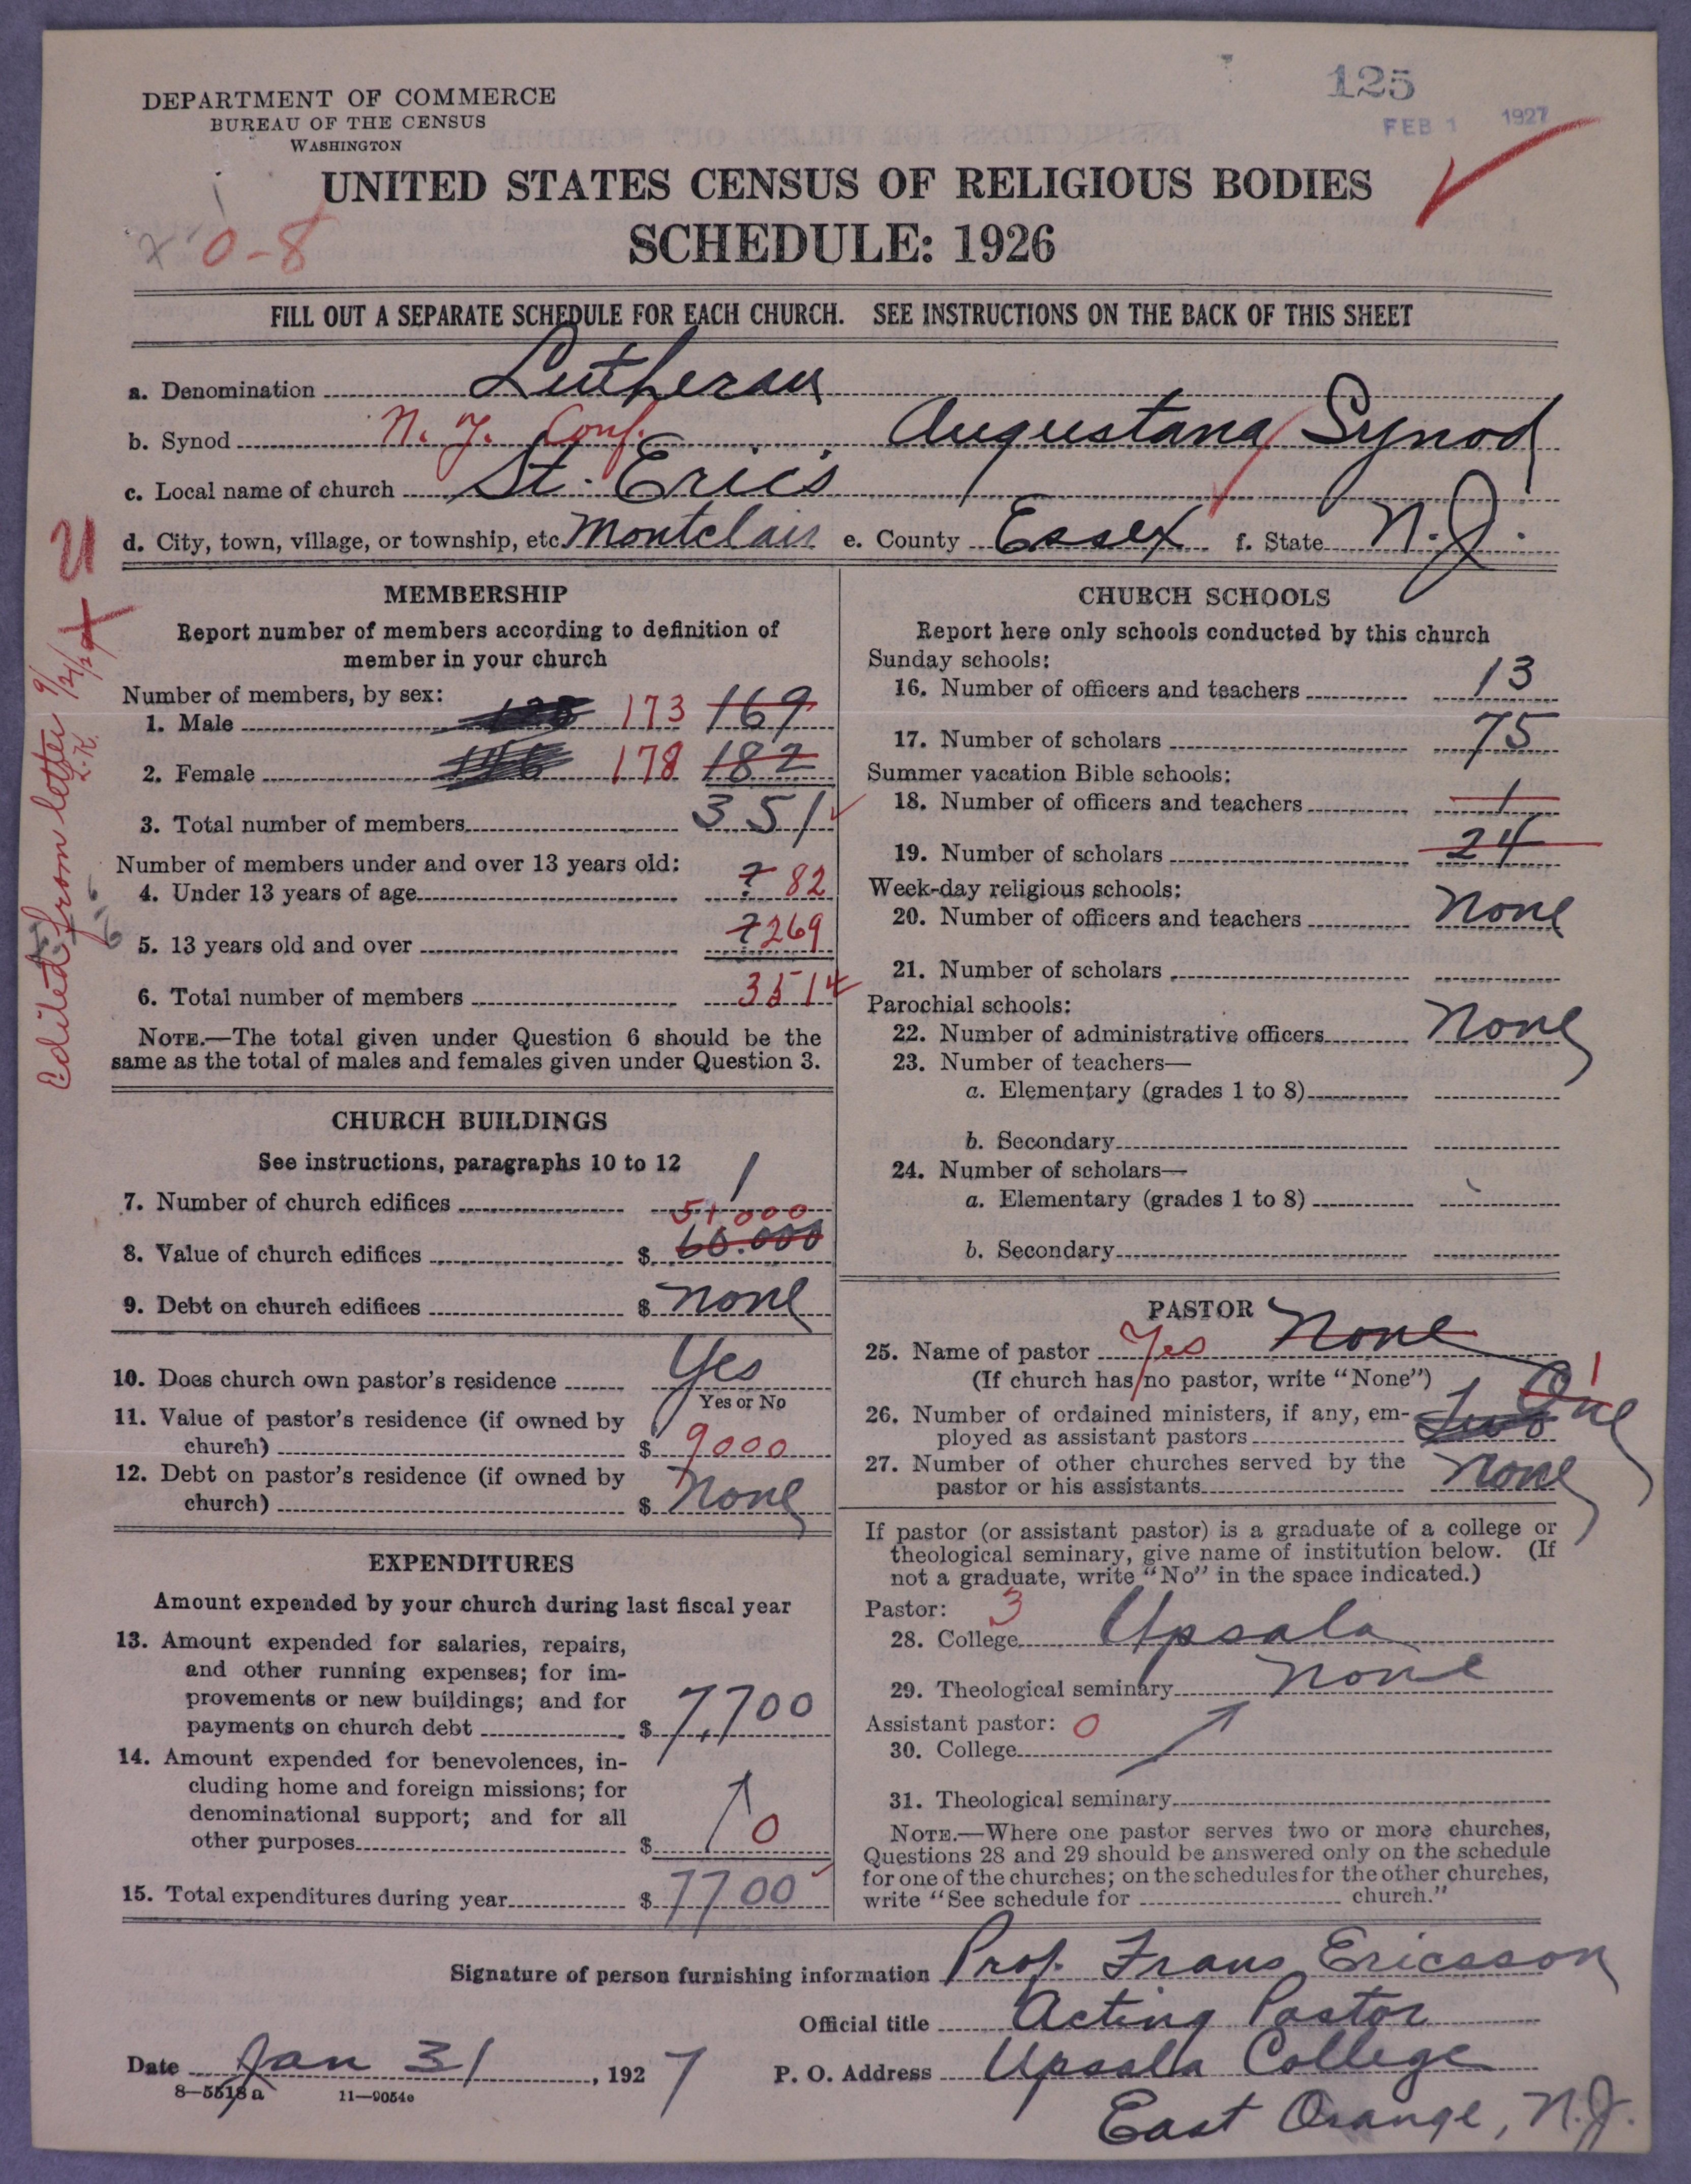 125
FEB 1 1927
DEPARTMENT OF COMMERCE
BUREAU OF THE CENSUS
WASHINGTON
UNITED STATES CENSUS OF RELIGIOUS BODIES
x 0-8
SCHEDULE: 1926
FILL OUT A SEPARATE SCHEDULE FOR EACH CHURCH. SEE INSTRUCTIONS ON THE BACK OF THIS SHEET
a. Denomination Lutheran
b. Synod N. Y. Conf. Augustana Synod
c. Local name of church St. Eric's
d. City, town, village, or township, etc. Montclair e. County Essex f. State N.J.
Edited from letter 9/21/29 L.K.
MEMBERSHIP
Report number of members according to definition of
member in your church
Number of members, by sex:
1. Male 173 169
2. Female 178 182
3. Total number of members 351
Number of members under and over 13 years old:
4. Under 13 years of age ? 82
5. 13 years old and over ? 269
6. Total number of members 351
NOTE.—The total given under Question 6 should be the
same as the total of males and females given under Question 3.
CHURCH BUILDINGS
See instructions, paragraphs 10 to 12
7. Number of church edifices 1
51000
8. Value of church edifices $ 60.000
9. Debt on church edifices $ none
10. Does church own pastor's residence Yes
Yes or No
11. Value of pastor's residence (if owned by
church) $ 9000
12. Debt on pastor's residence (if owned by
church) $ None
EXPENDITURES
Amount expended by your church during last fiscal year
13. Amount expended for salaries, repairs,
and other running expenses; for im-
provements or new buildings; and for
payments on church debt $ 7,700
14. Amount expended for benevolences, in-
cluding home and foreign missions; for
denominational support; and for all
other purposes $ 0
15. Total expenditures during year $ 7700
CHURCH SCHOOLS
Report here only schools conducted by this church
Sunday schools:
16. Number of officers and teachers 13
17. Number of scholars 75
Summer vacation Bible schools:
18. Number of officers and teachers 1
19. Number of scholars 24
Week-day religious schools:
20. Number of officers and teachers None
21. Number of scholars
Parochial schools:
22. Number of administrative officers None
23. Number of teachers—
a. Elementary (grades 1 to 8)
b. Secondary
24. Number of scholars—
a. Elementary (grades 1 to 8)
b. Secondary
PASTOR
25. Name of pastor Yes None
(If church has no pastor, write "None")
26. Number of ordained ministers, if any, em-
ployed as assistant pastors Two One 1
27. Number of other churches served by the
pastor or his assistants None
If pastor (or assistant pastor) is a graduate of a college or
theological seminary, give name of institution below. (If
not a graduate, write "No" in the space indicated.)
Pastor: 3
28. College Upsala
29. Theological seminary None
Assistant pastor: 0
30. College
31. Theological seminary
NOTE.—Where one pastor serves two or more churches,
Questions 28 and 29 should be answered only on the schedule
for one of the churches; on the schedules for the other churches,
write "See schedule for church."
Signature of person furnishing information Prof. Frans Ericsson
Official title Acting Pastor
Date Jan 31, 1927 P. O. Address Upsala College
8—5518a 11—9054c
East Orange, N.J.